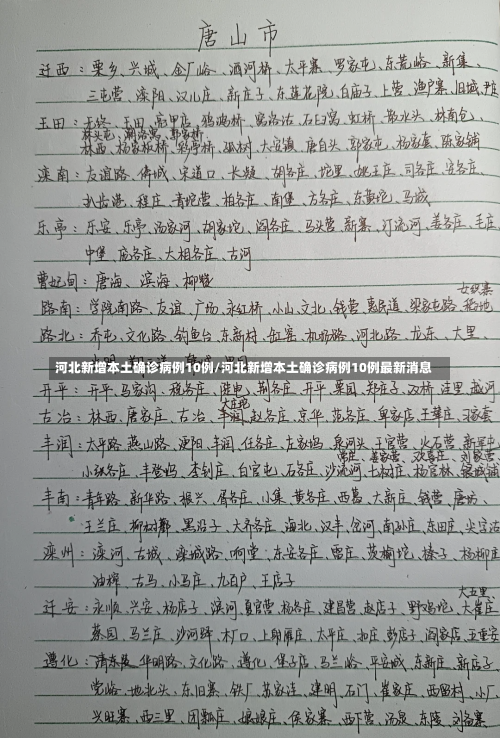 唐山市
迁西：栗乡、兴城、金厂峪、洒河桥、太平寨、罗家屯、东荒峪、新集、
三屯营、滦阳、汉儿庄、新庄子、东莲花院、白庙子、上营、渔户寨、旧城、尹庄
玉田：无终、玉田、亮甲店、鸦鸿桥、窝洛沽、石臼窝、虹桥、散水头、林南仓、
林头屯、潮洛窝、郭家桥
林西、杨家板桥、彩亭桥、孤树、大安镇、唐自头、郭家屯、杨家套、陈家铺
滦南：友谊路、倴城、宋道口、长凝、胡各庄、坨里、姚王庄、司各庄、安各庄、
扒齿港、程庄、青坨营、柏各庄、南堡、方各庄、东黄坨、马城
乐亭：乐安、乐亭、汤家河、胡家坨、阎各庄、马头营、新寨、汀流河、姜各庄、毛庄、
中堡、庞各庄、大相各庄、古河
曹妃甸：唐海、滨海、柳赞
女织寨
路南：学院南路、友谊、广场、永红桥、小山、文北、钱营、惠民道、梁家屯路、稻地
路北：乔屯、文化路、钓鱼台、东新村、缸窑、机场路、河北路、龙东、大里、
河北新增本土确诊病例10例/河北新增本土确诊病例10例最新消息
开平：开平、马家沟、税务庄、陡电、荆各庄、开平、栗园、郑庄子、双桥、洼里、越河
大庄坨
古冶：林西、唐家庄、古冶、赵各庄、京华、范各庄、卑家店、王辇庄、习家套
丰润：太平路、燕山路、浭阳、丰润、任各庄、左家坞、泉河头、王官营、火石营、新军屯
常庄、姜家营、欢喜庄、刘家营
小张各庄、丰登坞、李钊庄、白官屯、石各庄、沙流河、七树庄、杨官林、银城铺
丰南：青年路、新华路、振兴、胥各庄、小集、黄各庄、西葛、大新庄、钱营、唐坊、
王兰庄、柳树酄、黑沿子、大齐各庄、海北、汉丰、岔河、南孙庄、东田庄、尖字沽
滦州：滦河、古城、滦城路、响堂、东安各庄、雷庄、茨榆坨、榛子、杨柳庄
油榨、古马、小马庄、九百户、王店子
大五里
迁安：永顺、兴安、杨店子、滨河、夏官营、杨各庄、建昌营、赵店子、野鸡坨、大崔庄
蔡园、马兰庄、沙河驿、木厂口、上射雁庄、太平庄、扣庄、彭店子、阎家店、五重安
遵化：清东陵、华明路、文化路、遵化、堡子店、马兰峪、平安城、东新庄、新店子、
党峪、地北头、东旧寨、铁厂、苏家洼、建明、石门、崔家庄、西留村、小厂、
兴旺寨、西三里、团瓢庄、娘娘庄、侯家寨、西下营、汤泉、东陵、刘备寨